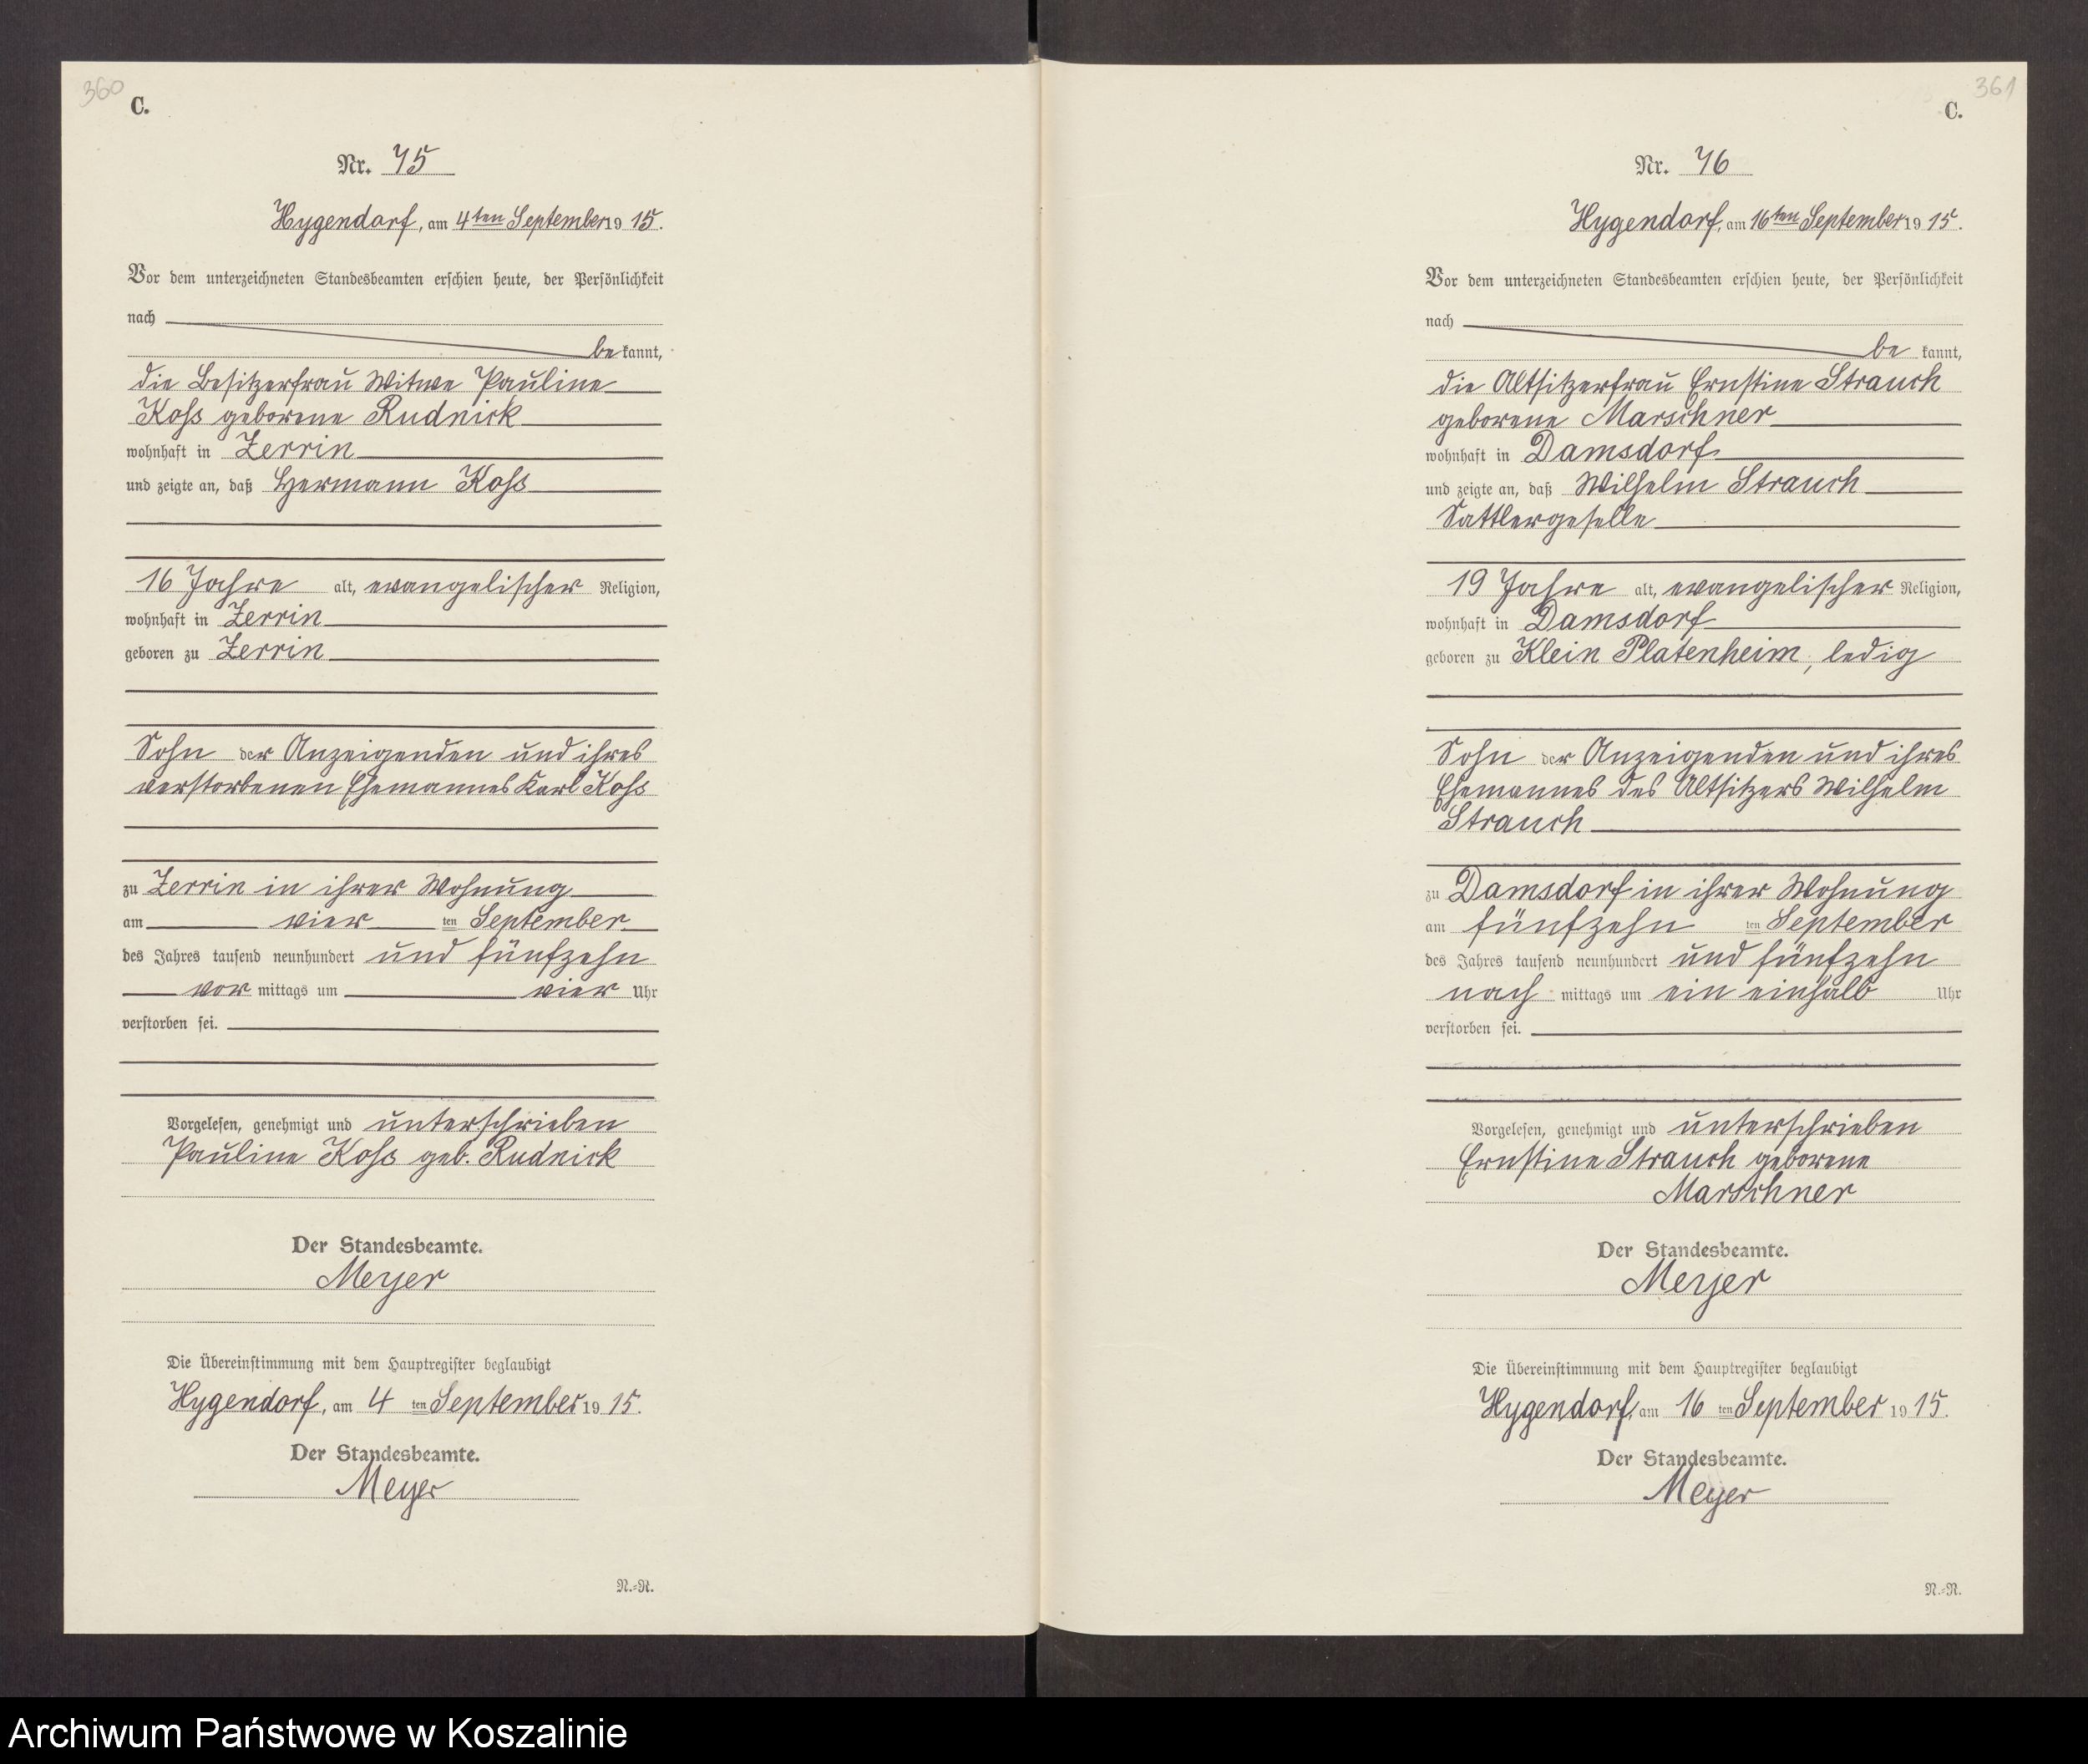 360
C.
Nr. 75
Hygendorf, am 4ten September 1915.
Vor dem unterzeichneten Standesbeamten erschien heute, der Persönlichkeit
nach
be kannt,
die Besitzerfrau Witwe Pauline
Koss geborene Rudnick
wohnhaft in Zerrin
und zeigte an, daß Hermann Koss
16 Jahre alt, evangelischer Religion,
wohnhaft in Zerrin
geboren zu Zerrin
Sohn der Anzeigenden und ihres
verstorbenen Ehemannes Karl Koss
zu Zerrin in ihrer Wohnung
am vier ten September
des Jahres tausend neunhundert und fünfzehn
vor mittags um vier Uhr
verstorben sei.
Vorgelesen, genehmigt und unterschrieben
Pauline Koss geb. Rudnick
Der Standesbeamte.
Meyer
Die Übereinstimmung mit dem Hauptregister beglaubigt
Hygendorf, am 4 ten September 1915.
Der Standesbeamte.
Meyer
N.=N.
361
C.
Nr. 76
Hygendorf, am 16ten September 1915.
Vor dem unterzeichneten Standesbeamten erschien heute, der Persönlichkeit
nach
be kannt,
die Altsitzerfrau Ernstine Strauch
geborene Marschner
wohnhaft in Damsdorf
und zeigte an, daß Wilhelm Strauch
Sattlergeselle
19 Jahre alt, evangelischer Religion,
wohnhaft in Damsdorf
geboren zu Klein Platenheim, ledig
Sohn der Anzeigenden und ihres
Ehemannes des Altsitzers Wilhelm
Strauch
zu Damsdorf in ihrer Wohnung
am fünfzehn ten September
des Jahres tausend neunhundert und fünfzehn
nach mittags um ein einhalb Uhr
verstorben sei.
Vorgelesen, genehmigt und unterschrieben
Ernstine Strauch geborene
Marschner
Der Standesbeamte.
Meyer
Die Übereinstimmung mit dem Hauptregister beglaubigt
Hygendorf, am 16 ten September 1915.
Der Standesbeamte.
Meyer
N.=N.
Archiwum Państwowe w Koszalinie